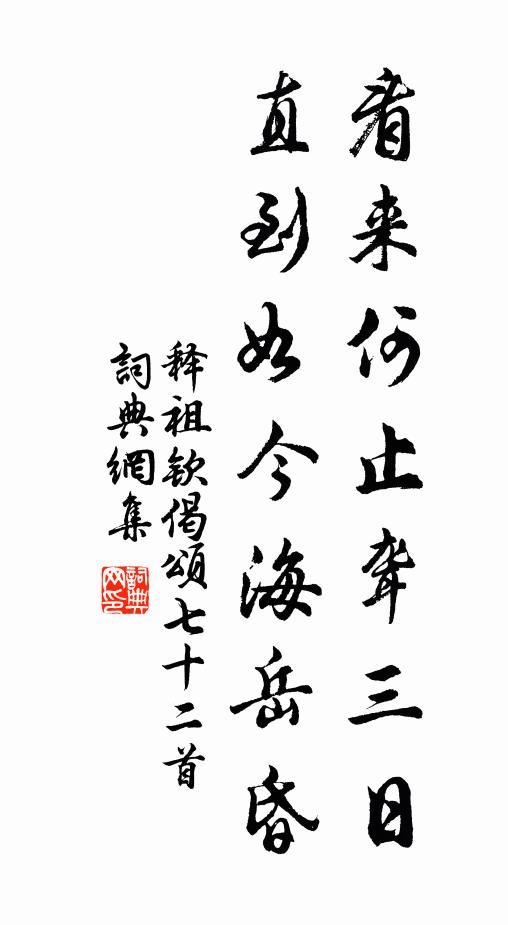 看来何止聋三日
直到如今海岳昏
释祖钦偈頌七十二首
詞典網集
詞典
网印